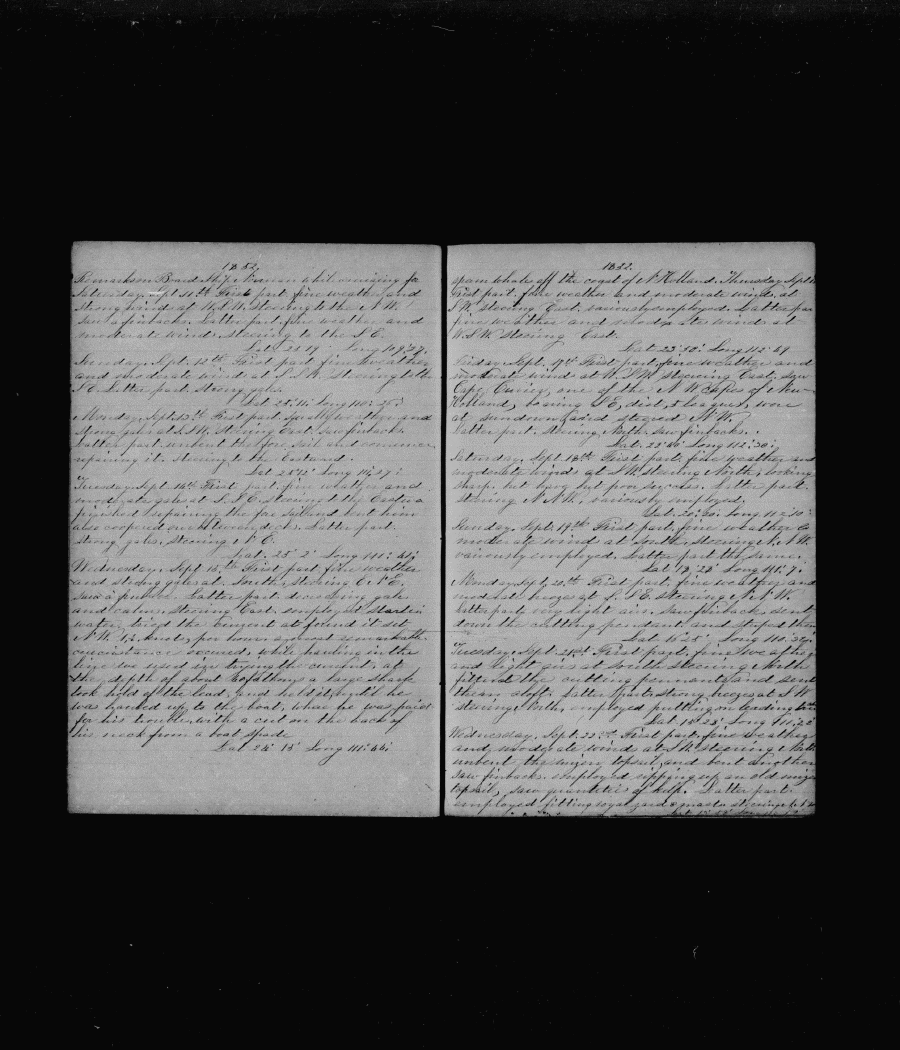 1852.
Remarks on Board Ship Nauman whil cruising fo
Saturday, Sept 11th First part, fine weather and
strong wind at W.S.W. Steering to the N.W.
saw finbacks. Latter part fine weather and
moderate wind. Steering to the S.E.
Lat 25°19' Long 109°37'
Sunday, Sept. 12th First part fine weather
and moderate wind at S.S.W. Steering to the
S.E. Latter part, strong gales.
Lat 25°11' Long 110°25'
Monday, Sept. 13th First part, squally weather, and
strong gales at S.W. Steering East. saw finbacks.
Latter part, unbent the fore sail and commenc
repairing it. steering to the Eastward.
Lat 25°12' Long 111°27'
Tuesday, Sept. 14th First part, fine weather and
moderate gales at S.S.E. steering by
finished repairing the fore sail and bent him
also coopered Latter part
strong gales. Steering N.E.
Lat. 25° 2' Long 111° 41'
Wednesday, Sept 15th First part, fine weather
and strong gales at South, Steering E.N.E.
saw a Latter part decreasing gale
and calms, steering East. employed
water, tried the current at found it set
N.W. 1,2 knot, per hour. a great remarkable
circumstance occured, while hauling in the
line we used in trying the current, at
the depth of about 60 fathoms a large shark
took hold of the lead, and held it, until he
was hauled up, to the boat, when he was paid
for his trouble, with a cut on the back of
his neck from a boat spade
Lat 24° 15' Long 111° 44'
1852.
spam whale off the coast of N Holland. Thursday Sept 1
First part, fine weather and moderate wind, at
S.W. steering East, variously employed. Latter par
fine weather and moderate wind at
W.S.W. steering East.
Lat 23°50' Long 112°49
Friday, Sept. 17th First part, fine weather and
moderate wind at W.S.W. steering East. saw
Cape Cuvier, one of the N.W. Capes of New
Holland, bearing S.E, dist, 5 leagues, wore
at sundown, and steered N.W.
Latter part. Steering, North, saw finbacks.
Lat. 22°44' Long 112°30'
Saturday, Sept 18th First part, fine weather and
moderate winds at S.W. steering North, looking
sharp, but having but poor success. Latter part
steering N.N.W., variously employed.
Lat. 20°20' Long 112°10'
Sunday, Sept. 19th First part, fine weather &
moderate wind at South, steering N.N.W.
variously employed. Latter part the same.
Lat 18°23' Long 111°7'
Monday, Sept, 20th First part, fine weather and
moderate breezes at S.S.E. steering N.N.W.
latter part, very light air, saw finback, sent
down the cutting pendant, and striped them
Lat 16°25' Long 111°32'
Tuesday, Sept. 21st First part, fine weather
and light airs at South steering North
fitted the cutting pennants, and sent
them aloft. Latter part, strong breezes at S.W
steering North, employed putting on
Lat 15°23' Long 111°22'
Wednesday, Sept. 22nd First part, fine weather
and moderate wind at S.W. steering North
unbent the mizen topsail, and bent another
saw finbacks. employed ripping up an old mizen
topsail, saw quantities of kelp. Latter part
employed fitting royal yard & masts steering